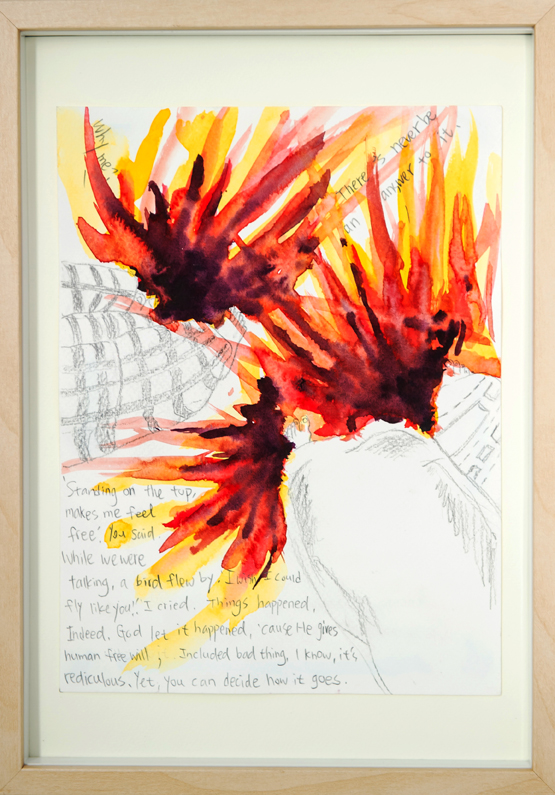 Why me?
There's never be
an answer to it.
'Standing on the top,
makes me feel
free.' You said
While we were
talking, a bird flew by. I wish I could
fly like you!' I cried. Things happened.
Indeed. God let it happened, 'cause He gives
human free will ; Included bad thing, I know, it's
rediculous. Yet, you can decide how it goes.